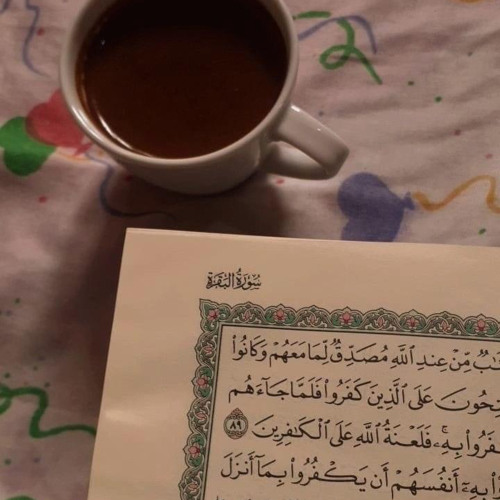 سُورَةُ البَقَرَةِ
مِّنْ عِندِ ٱللَّهِ مُصَدِّقٌ لِّمَا مَعَهُمْ وَكَانُوا۟
عَلَى ٱلَّذِينَ كَفَرُوا۟ فَلَمَّا جَآءَهُم
بِهِۦۚ فَلَعْنَةُ ٱللَّهِ عَلَى ٱلْكَٰفِرِينَ ٨٩
أَنفُسَهُمْ أَن يَكْفُرُوا۟ بِمَآ أَنزَلَ